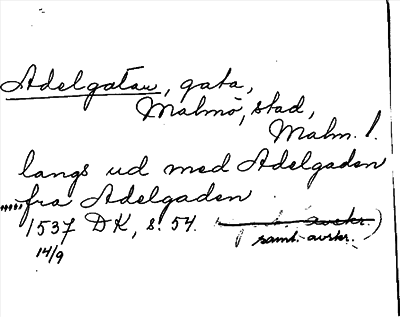 Adelgatan, gata,
Malmö, stad,
Malm. l.
langs ud med Adelgaden
.....fra Adelgaden
1537 DK, s. 54.
saml. avskr.
14/9